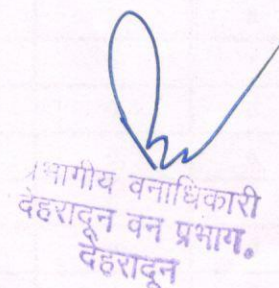 प्रभागीय वनाधिकारी
देहरादून वन प्रभाग.
देहरादून